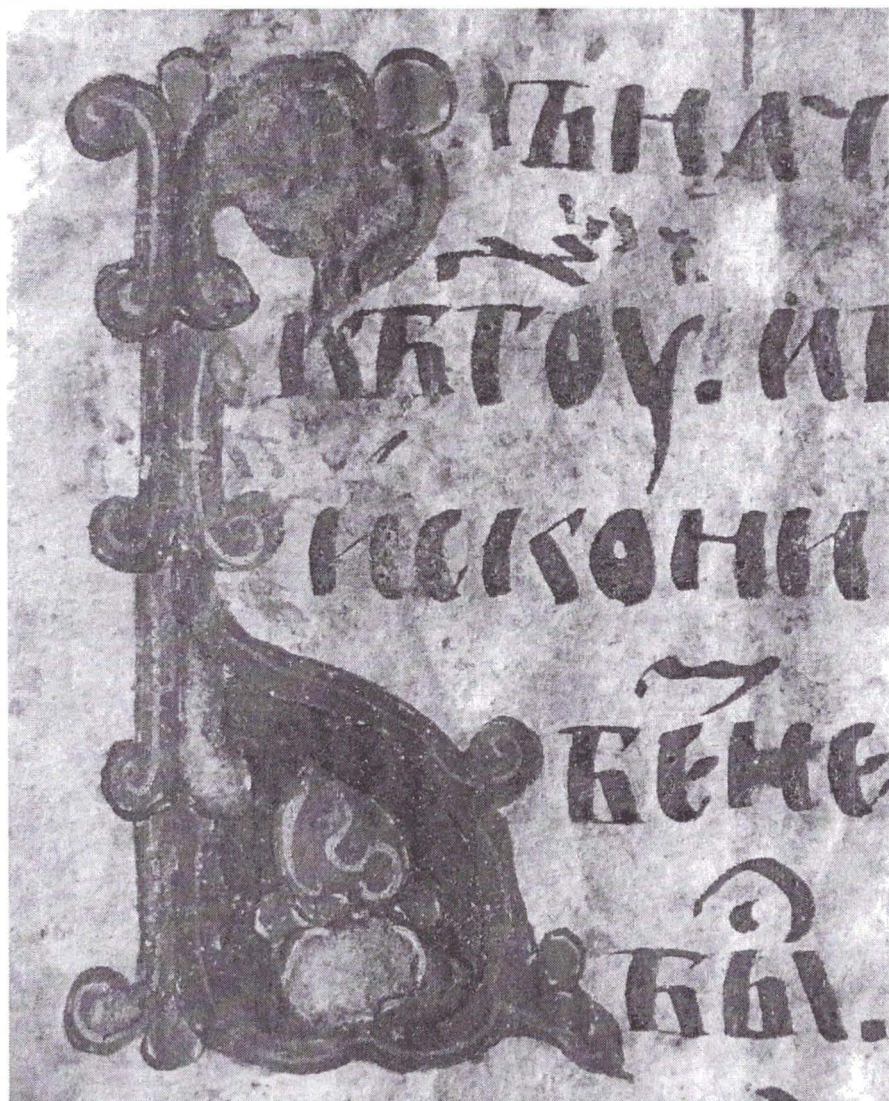 ЪНАЧ
кбгоу. ит
искони
беⷥне
быⷭ҇.